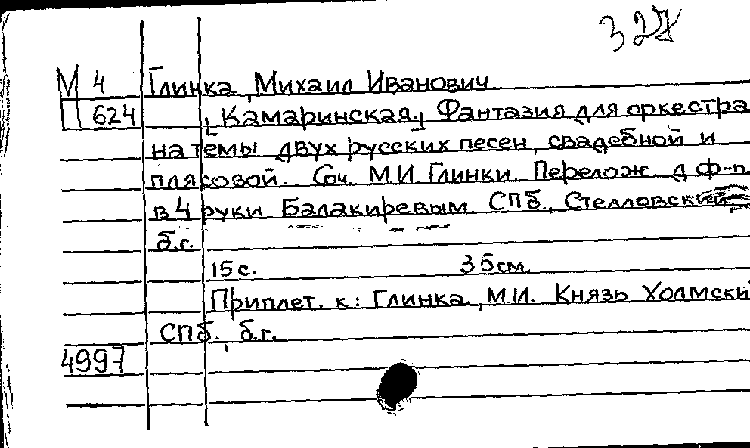 327
М 4 Глинка, Михаил Иванович
П 624 "Камаринская" Фантазия для оркестра
на темы двух русских песен, свадебной и
плясовой. Соч. М.И. Глинки. Перелож. д. ф-п.
в 4 руки Балакиревым. СПб., Стелловский,
б.г.
15 с. 35 см.
Приплет. к: Глинка, М.И. Князь Холмски
СПб., б.г.
4997